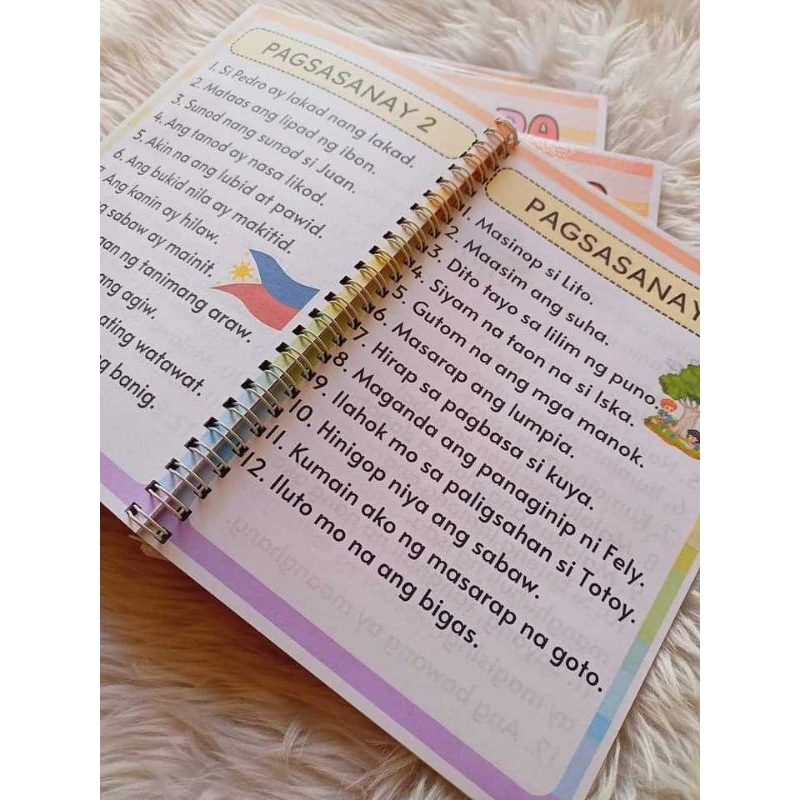 PAGSASANAY 2
1. Si Pedro ay lakad nang lakad.
2. Mataas ang lipad ng ibon.
3. Sunod nang sunod si Juan.
4. Ang tanod ay nasa likod.
5. Akin na ang lubid at pawid.
6. Ang bukid nila ay makitid.
Ang kanin ay hilaw.
sabaw ay mainit.
ng tanimang araw.
ang agiw.
ating watawat.
banig.
PAGSASANAY
1. Masinop si Lito.
2. Maasim ang suha.
3. Dito tayo sa lilim ng puno.
4. Siyam na taon na si Iska.
5. Gutom na ang mga manok.
6. Masarap ang lumpia.
7. Hirap sa pagbasa si kuya.
8. Maganda ang panaginip ni Fely.
9. Ilahok mo sa paligsahan si Totoy.
10. Hinigop niya ang sabaw.
11. Kumain ako ng masarap na goto.
12. Iluto mo na ang bigas.